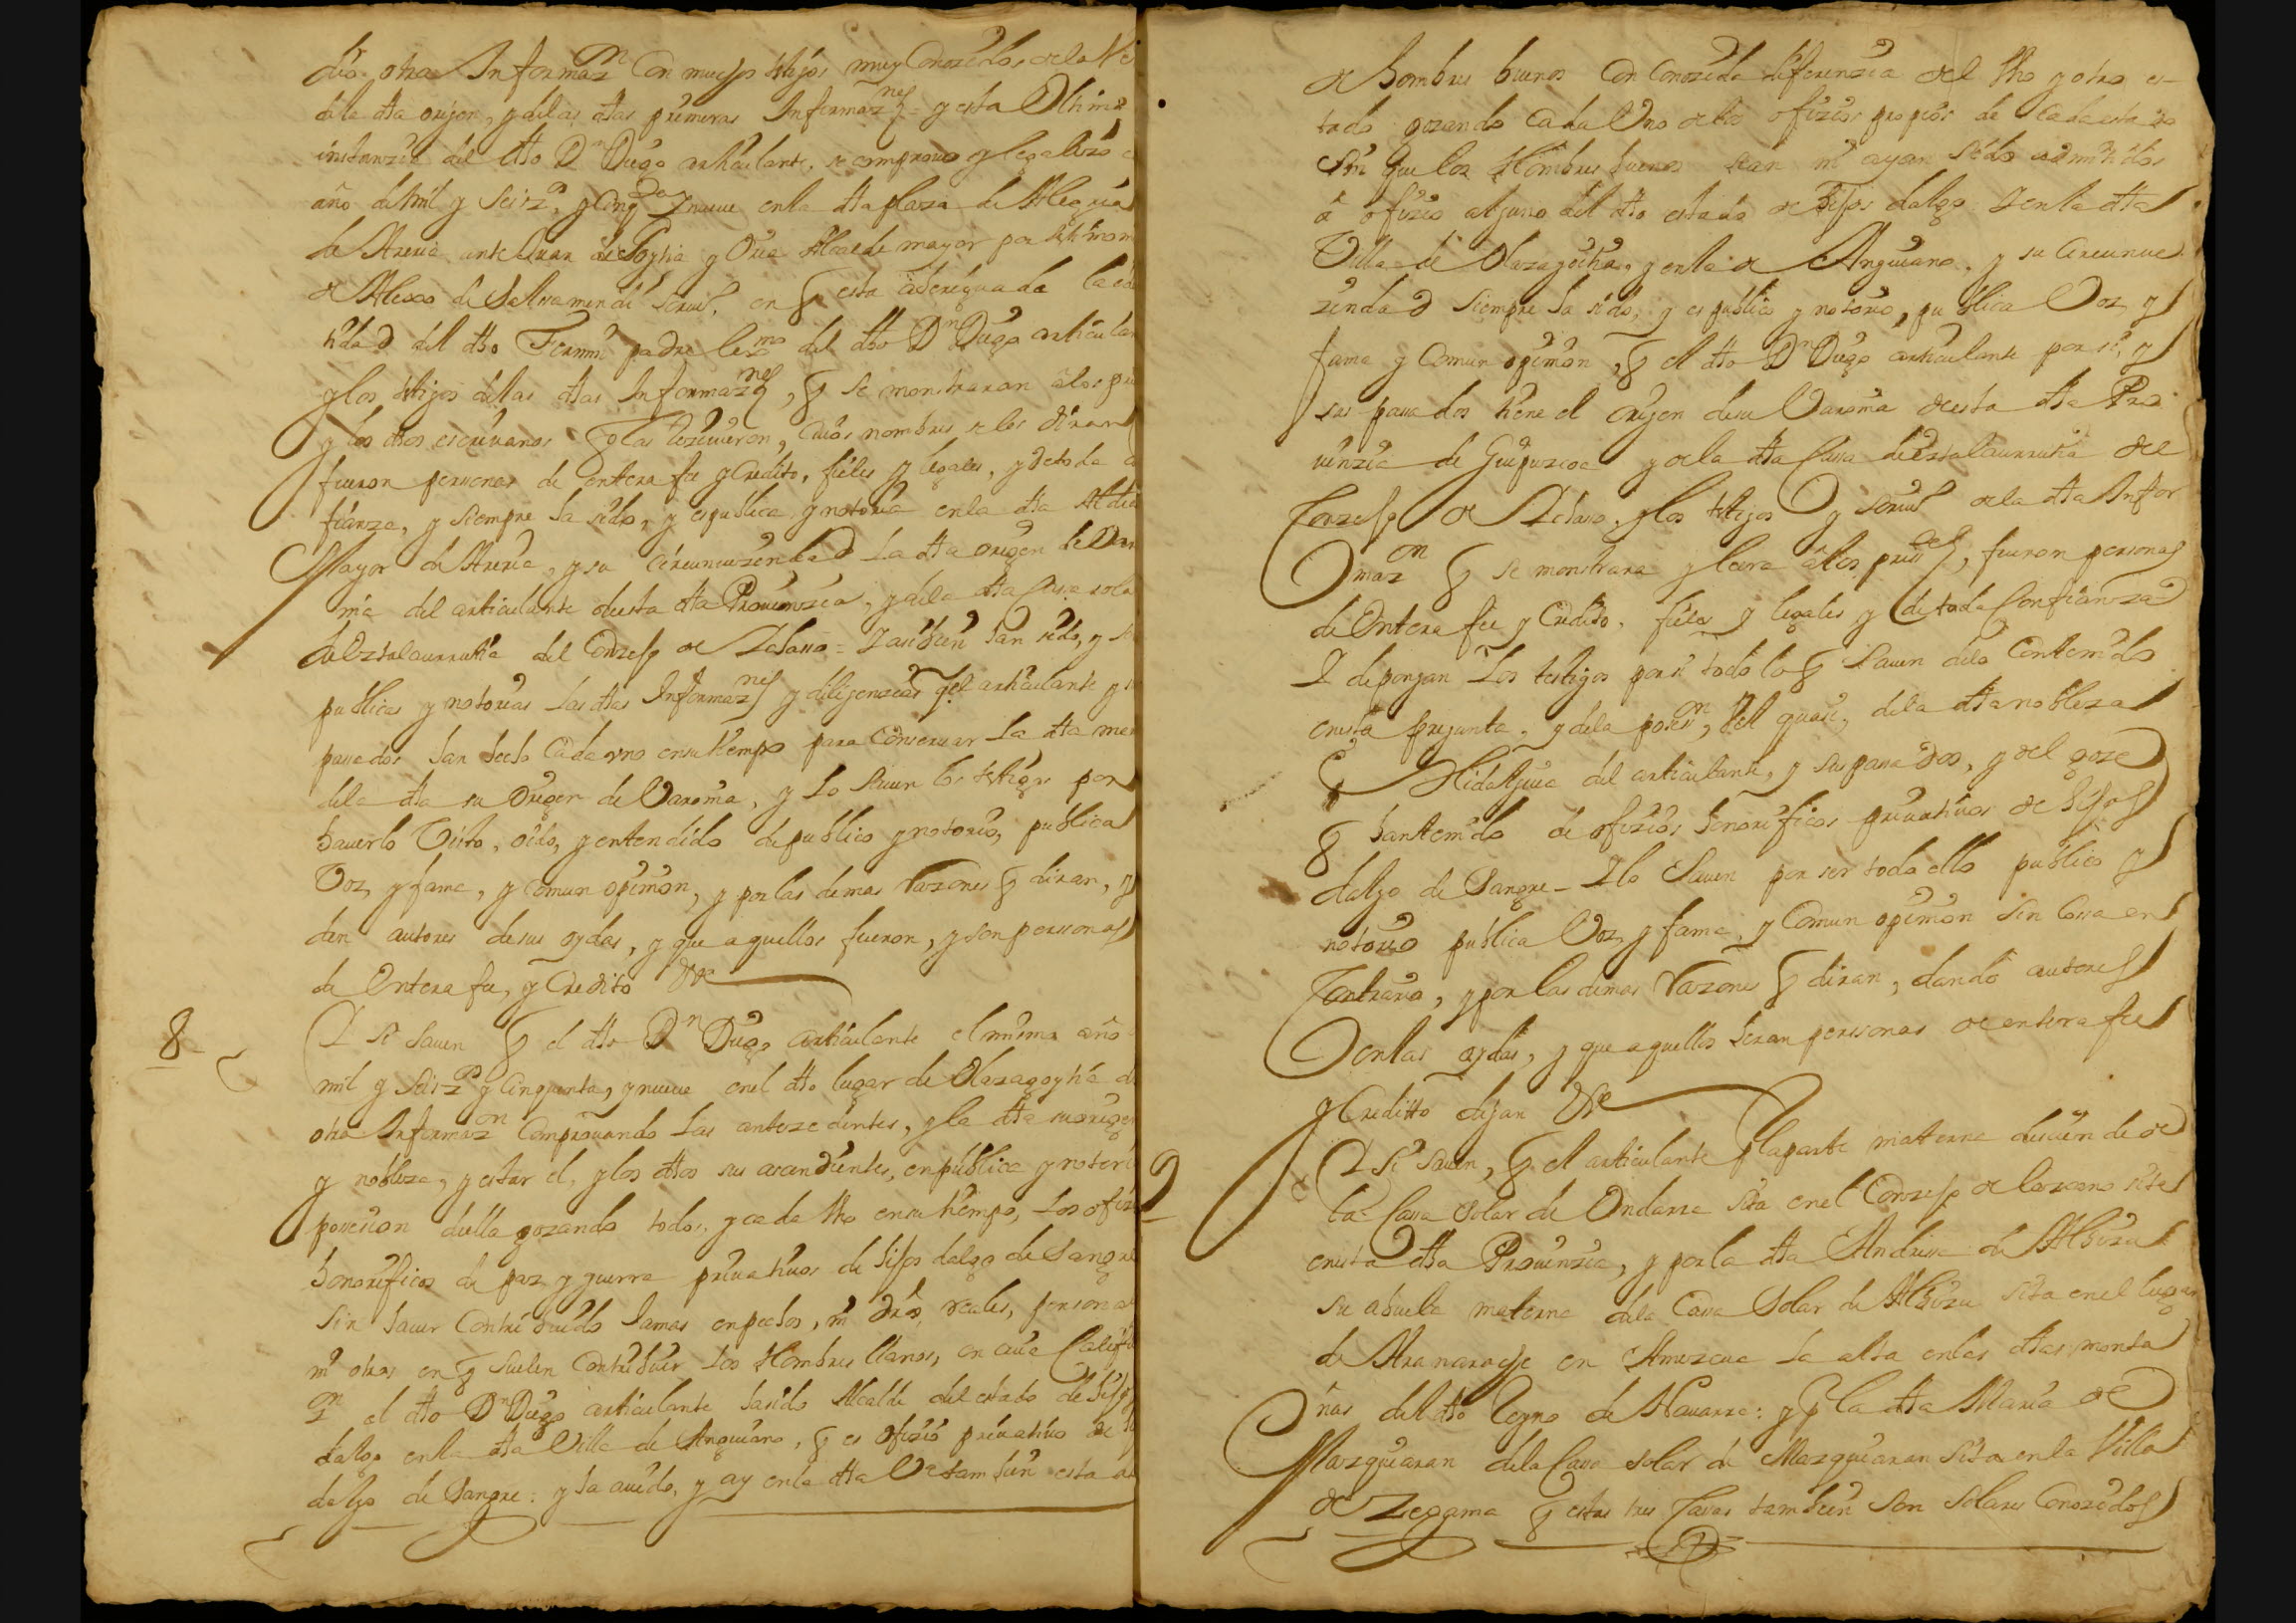 dio otra Informazon Con muchos testigos muy Conozidos de la Ve
de la dha orijen, y de las dhas primeras Informaznes = y esta Ultima
instanzia del dho Dn Diego articulante, se comprouo y legalizo
año de mil y seisz.s y Cinqta y nueue en la dha plaza de Alegria
de Areria ante Juan de Goytia y Oria Alcalde mayor por testimonio
de Alexo de Salsamendi scriu.o, en q esta aberiguada la
tidad del dho Fermin padre lexmo del dho Dn Diego articulan
y los testigos de las dhas Informaznes, q se monstraran a los
y los dhos escriuanos q las Rezivieron, cuios nombres se les diran
fueron personas de entera fee y Credito, fieles y legales, y de toda
fianza, y siempre ha sido, y es publica y notoria en la dha Aldia
Mayor de Areria, y su circunuezindad la dha orijen de Varo
nia del articulante de esta dha Prouinzia, y de la dha Casa sola
de Ustalaurrutia del Conzejo de Idiazo = Y asi bien han sido, y
publicas y notorias las dhas Informaznes y diligenzias q el articulante y
pasados han hecho Cada vno en su tiempo para Conseruar la dha me
de la dha su Orijen de Varonia, y Lo Sauen los testigos por
hauerlo Visto, oido, y entendido de publico y notorio, publica
Voz, y fama, y Comun opinion, y por las demas Razones q diran, y
den autores de sus oydas, y que aquellos fueron, y son personas
de Entera fee, y Credito &c
8 Y si Sauen q el dho Dn Diego articulante el mismo año
mil y Seisz.s y Cinquenta, y nueue en el dho lugar de Olazagoytia
otra Informazon Comprouando las antezedentes, y la dha su orijen
y nobleza, y estar el, y los dhos sus ascendientes, en publica y notori
posesion della gozando todos, y cada vno en su tiempo, Los ofizi
honorificos de paz y guerra priuatiuos de hijos dalgo de Sangre
Sin hauer Contribuido Jamas en pechos, ni dros, reales, personal
ni otros en q Suelen Contribuir Los Hombres llanos, en cuia Califica
on el dho Dn Diego articulante ha sido Alcalde del estado de hijos
dalgo en la dha Villa de Anguiano, q es Ofizio priuatiuo de hi
dalgo de Sangre: y ha auido, y ay en la dha Va tambien estado
de hombres buenos Con Conozida diferenzia del vno y otro es-
tado gozando Cada Uno de los ofizios propios de Cada estado
Sin que los Hombres buenos sean ni ayan sido admitidos
a ofizio alguno del dho estado de hijos dalgo. Y en la dha
Villa de Olazagoitia, y en la de Anguiano, y su Circunue
zindad siempre ha sido, y es publico y notorio, publica Voz, y
fama y Comun opinion, q el dho Dn Diego articulante por si, y
sus pasados tiene el Orijen de su Varonia de esta dha Pro
uinzia de Guipuzcoa y de la dha Casa de Ustalaurrutia del
Conzejo de Idiazo. y los testigos y scriu.o de la dha Infor
mazon q se monstrara y leera a los pres.tes, fueron personas
de Entera fee y Credito, fieles y legales y de toda Confianza
Y depongan Los testigos por si todo lo q Sauen de lo Contenido
en esta pregunta, y de la poses.on, Vel quasi, de la dha nobleza
e Hidalguia del articulante, y sus pasados, y del goze
q han tenido de ofizios honorificos priuatiuos de hijos
dalgo de Sangre - Y lo Sauen por ser todo ello publico y
notorio publica Voz, y fama, y Comun opinion Sin Cosa en
Contrario, y por las demas Razones q diran, dando autores
en las oydas, y que aquellos heran personas de entera fee
y Creditto digan &c
9 Y si Sauen, q el articulante p la parte materna desciende de
la Casa Solar de Ondarra sita en el Conzejo de Lazcano sita
en esta dha Prouinzia, y por la dha Andresa de Albizu
su abuela materna de la Casa Solar de Albizu sita en el lugar
de Aranarache en Amezcua la alta en las dhas monta
ñas del dho Reyno de Nauarra: y p la dha Maria de
Mazquiaran de la Casa Solar de Mazquiaran Sita en la Villa
de Zegama q estas tres Casas tambien Son Solares Conozidos